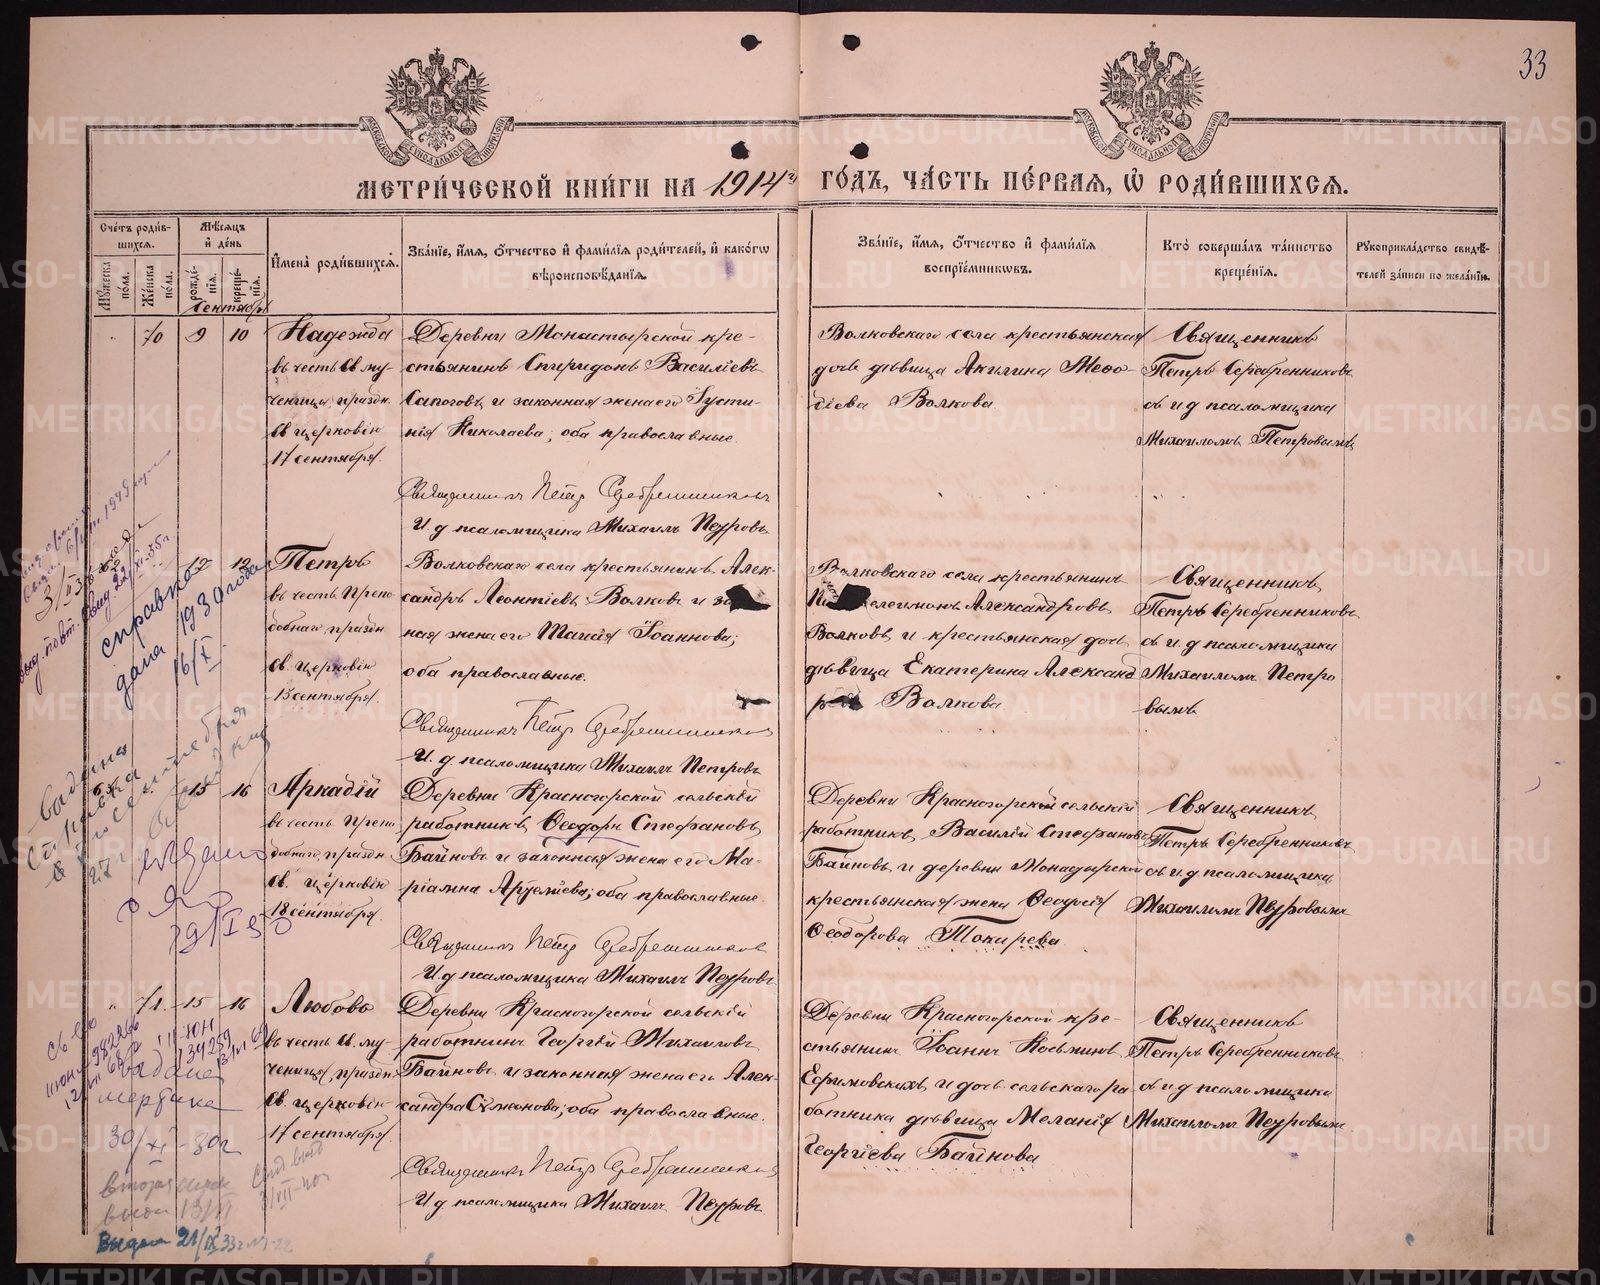 33
МЕТРИ́ЧЕСКОЙ КНИ́ГИ НА 1914й ГО́ДЪ, ЧА́СТЬ ПЕ́РВАЯ, Ѡ РОДИ́ВШИХСЯ.
Сче́тъ роди́вшихся.
Мѣ́сяцъ и де́нь
Имена̀ роди́вшихся.
Зва́ніе, и́мя, о́тчество и фами́лія роди́телей, и како́гѡ
вѣроисповѣ́данія.
Зва́ніе, и́мя, о́тчество и фами́лія
воспріе́мниковъ.
Кто̀ соверша́лъ та́инство
креще́нія.
Рукоприкла́дство свидѣ́телей за́писи по жела́нію.
Му́жеска по́ла.
Же́нска по́ла.
рожде́нія.
креще́нія.
Сентябрь
70 9 10
Надежда
въ честь Св. му-
ченицы, праздн.
Св. церковію
17 сентября.
Деревни Монастырской кре-
стьянинъ Спиридонъ Василіевъ
Сапоговъ и законная жена его Іусти-
нія Николаева; оба православные
Священникъ Петръ Серебренниковъ
И. д псаломщика Михаилъ Петровъ
Волковскаго села крестьянская
дочь дѣвица Акилина Меѳо-
діева Волкова
Священникъ
Петръ Серебренниковъ
съ и д псаломщика
Михаиломъ Петровымъ
12
Петръ
въ честь Препо
добнаго, праздн
Св. церковію
15 сентября.
Волковскаго села крестьянинъ Алек-
сандръ Леонтіевъ Волковъ и за
ная жена его Таисія Іоаннова;
оба православные.
Священникъ Петръ Серебренниковъ
И. д псаломщика Михаилъ Петровъ
Волковскаго села крестьянинъ
елеимонъ Александровъ
Волковъ и крестьянская дочь
дѣвица Екатерина Александ
Волкова
Священникъ
Петръ Серебренниковъ
съ и. д псаломщика
Михаиломъ Петро
вымъ
15 16
Аркадій
въ честь Препо
добнаго, праздн
Св. церковію
18 сентября.
Деревни Красногорской сельскій
работникъ Ѳеодоръ Стефановъ
Баиновъ и законная жена его Ма-
ріамна Артеміева; оба православные
Священникъ Петръ Серебренниковъ
И. д псаломщика Михаилъ Петровъ
Деревни Красногорской сельскій
работникъ Василій Стефановъ
Баиновъ и деревни Монастырской
крестьянская жена Ѳеодосія
Ѳеодорова Токирева
Священникъ
Петръ Серебренниковъ
съ и. д псаломщика
Михаиломъ Петровымъ
71 15 16
Любовь
въ честь Св. му-
ченицы, праздн.
Св. церковію
17 сентября.
Деревни Красногорской сельскій
работникъ Георгій Михаиловъ
Баиновъ и законная жена его Алек-
сандра Симеонова; оба православные.
Священникъ Петръ Серебренниковъ
И д псаломщика Михаилъ Петровъ
Деревни Красногорской кре-
стьянинъ Іоаннъ Косьминъ
Ефимовскихъ и дочь сельскаго ра
ботника дѣвица Меланія
Георгіева Баинова
Священникъ
Петръ Серебренниковъ
съ и д псаломщика
Михаиломъ Петровымъ
справка
дана 1930 года
16/X
выдана
справка
выдана
метрика
30/XI-30г
вторая
Выдана 21/IX 33г
METRIKI.GASO-URAL.RU